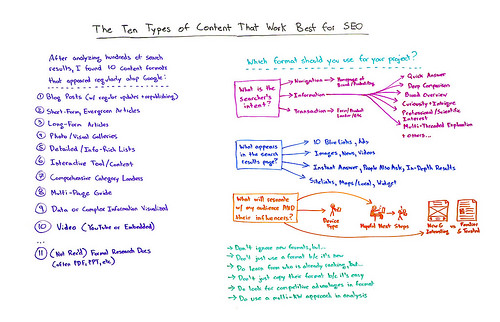 The Ten Types of Content That Work Best for SEO
After analyzing hundreds of search
results, I found 10 content formats
that appeared regularly atop Google:
1 Blog Posts (w/ regular updates + republishing)
2 Short-Form, Evergreen Articles
3 Long-Form Articles
4 Photo/Visual Galleries
5 Detailed/Info-Rich Lists
6 Interactive Tool/Content
7 Comprehensive Category Landers
8 Multi-Page Guide
9 Data or Complex Information Visualized
10 Video (YouTube or Embedded)
...
11 (Not Rec'd) Formal Research Docs
(often PDF, PPT, etc)
Which format should you use for your project?
What is
the
searcher's
intent?
Navigation
Homepage of
Information
Transaction
Quick Answer
Deep Comparison
Broad Overview
Curiosity + Intrigue
Professional/Scientific
Interest
Multi-Threaded Exploration
+ others...
What appears
in the search
results page?
10 Blue Links, Ads
Images, News, Videos
Instant Answer, People Also Ask, In-Depth Results
Sitelinks, Maps/Local, Widget
What will resonate
w/ my audience AND
their influencers?
Device
Type
Next Steps
New &
Interesting
vs
Familiar
& Trusted
Don't ignore new formats, but...
Don't just use a format b/c it's new
Do learn from who is already ranking, but...
Don't just copy their format b/c it's easy
Do look for competitive advantages in format
Do use a multi-KW approach in analysis